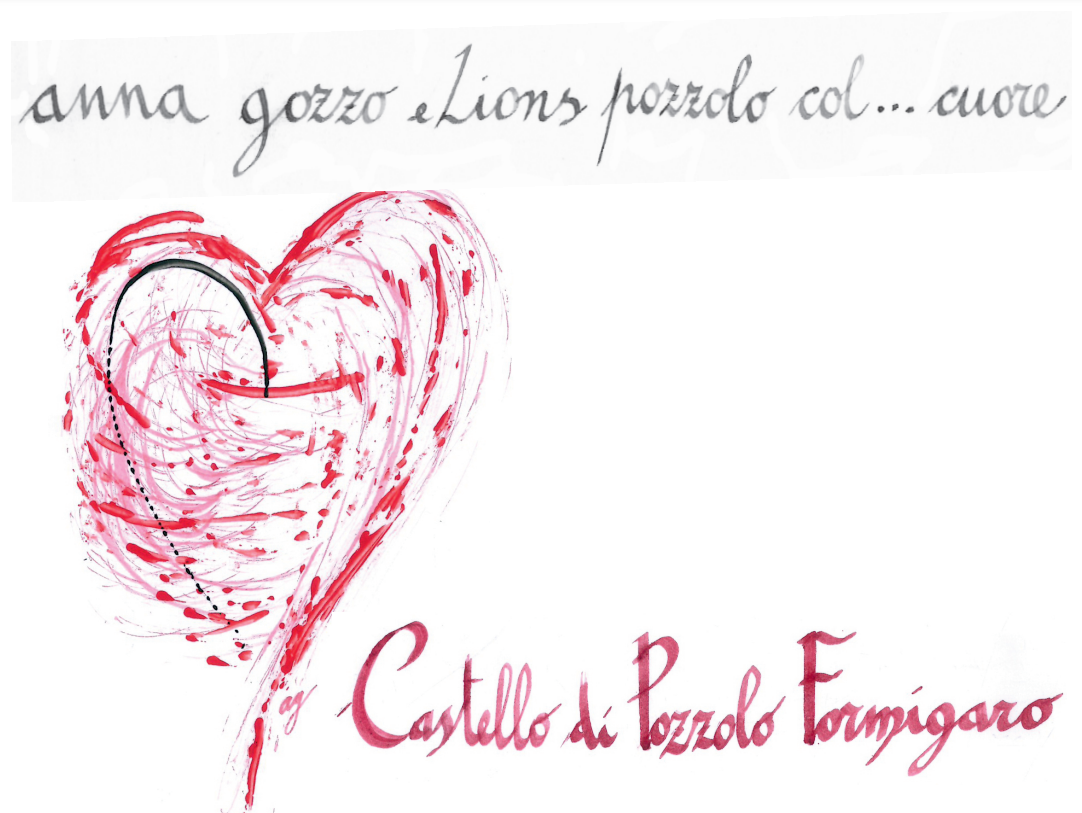 anna gozzo e Lions pozzolo col... cuore
ag
Castello di Pozzolo Formigaro